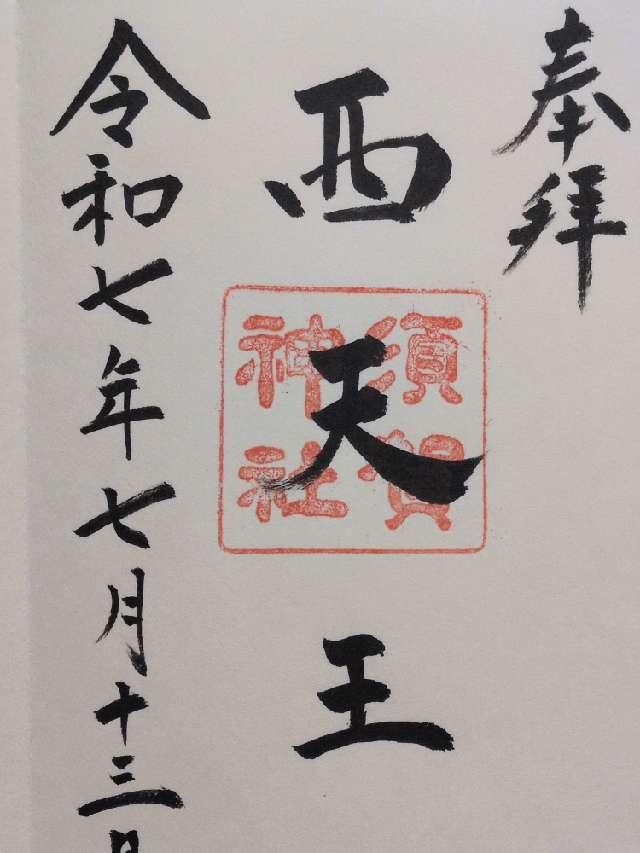 奉拝
西天王
須賀
神社
令和七年七月十三日